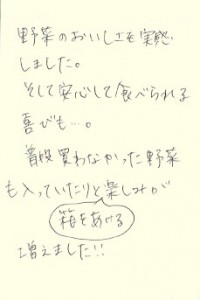 野菜のおいしさを実感
しました。
そして安心して食べられる
喜びも…。
普段買わなかった野菜
も入っていたりと楽しみが
箱をあける
増えました!!